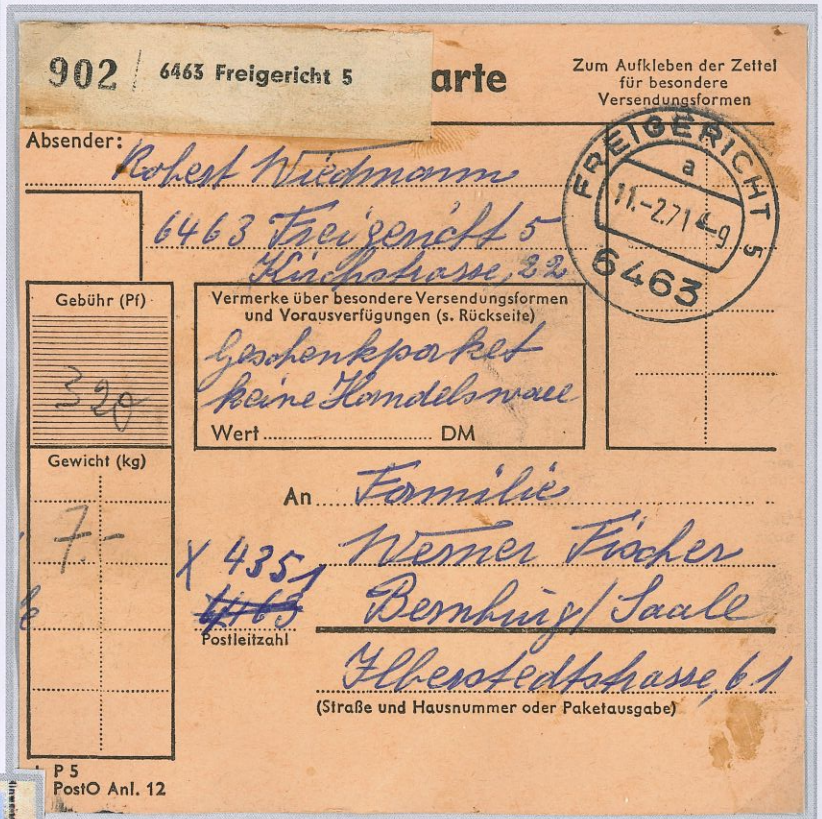 902 6463 Freigericht 5
arte
Zum Aufkleben der Zettel
für besondere
Versendungsformen
Absender:
Robert Wiedmann
6463 Freigericht 5
Kirchstrasse, 22
FREIGERICHT 5
a
11.-2.71
6463
Gebühr (Pf)
320
Vermerke über besondere Versendungsformen
und Vorausverfügungen (s. Rückseite)
Geschenkpaket
keine Handelsware
Wert DM
Gewicht (kg)
7.-
An Familie
Werner Fischer
X 4351
4463
Bernburg/Saale
Postleitzahl
Ilberstedtstrasse, 61
(Straße und Hausnummer oder Paketausgabe)
P 5
PostO Anl. 12